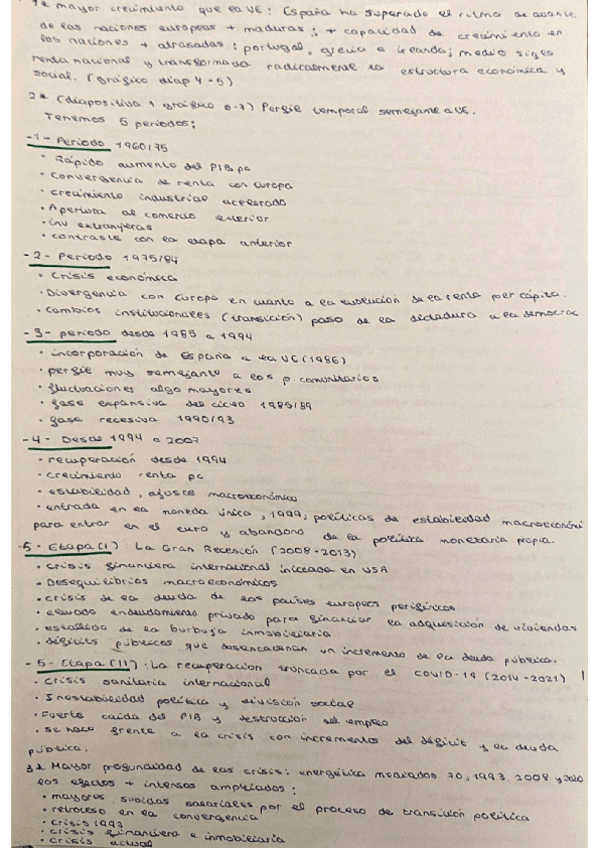 1* mayor crecimiento que la UE: España ha superado el ritmo de avance
de las naciones europeas + maduras; + capacidad de crecimiento en
las naciones + atrasadas: portugal, grecia e irlanda; medio siglo
renta nacional y transformada radicalmente la estructura económica y
social. (gráfico diap 4-5)
2* (diapositiva y gráfico 6-7) Perfil temporal semejante a UE.
Tenemos 5 periodos:
-1- Periodo 1960/75
• Rápido aumento del PIB pc
• Convergencia de renta con Europa
• Crecimiento industrial acelerado
• Apertura al comercio exterior
• inv extranjeras
• contraste con la etapa anterior
-2- Periodo 1975/84
• Crisis económica
• Divergencia con Europa en cuanto a la evolución de la renta per cápita.
• Cambios institucionales (transición) paso de la dictadura a la democrac
-3- periodo desde 1985 a 1994
• incorporación de España a la UE (1986)
• perfil muy semejante a los p. comunitarios
• fluctuaciones algo mayores
• fase expansiva del ciclo 1985/89
• fase recesiva 1990/93
-4- Desde 1994 a 2007
• recuperación desde 1994
• crecimiento renta pc
• estabilidad, ajuste macroeconómico
• entrada en la moneda única, 1999, políticas de estabilidad macroeconómi
para entrar en el euro y abandono de la política monetaria propia.
-5- Etapa (I): La Gran Recesión (2008-2013)
• Crisis financiera internacional iniciada en USA
• Desequilibrios macroeconómicos
• crisis de la deuda de los países europeos periféricos
• elevado endeudamiento privado para financiar la adquisición de viviendas
• estallido de la burbuja inmobiliaria
• déficits públicos que desencadenan un incremento de la deuda pública.
-5- Etapa (II): La recuperación truncada por el COVID-19 (2014-2021)
• Crisis sanitaria internacional
• Inestabilidad política y división social
• Fuerte caída del PIB y destrucción del empleo
• se hace frente a la crisis con incrementos del déficit y la deuda
pública.
3* Mayor profundidad de las crisis: energética mediados 70, 1993, 2008 y 2020
los efectos + intensos ampliados:
• mayores subidas salariales por el proceso de transición política
• retroceso en la convergencia
• crisis 1993
• crisis financiera e inmobiliaria
• crisis actual